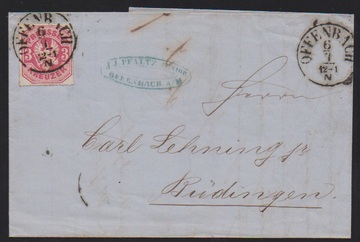 OFFENBACH
6
7
12-1
N
PREUSSEN
3 3
KREUZER
OFFENBACH
6
7
12-1
N
OFFENBACH a/M
Herrn
Carl Lehning jr
Büdingen.